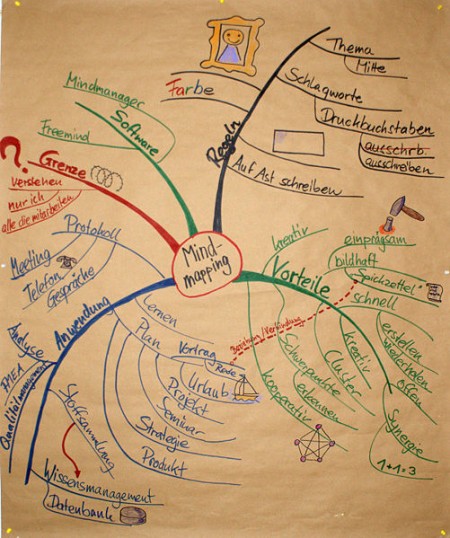 Mind-
mapping
Regeln
Thema
Mitte
Schlagworte
Druckbuchstaben
ausschrb.
ausschreiben
Auf Ast schreiben
Farbe
Software
Mindmanager
Freemind
Grenze
?
verstehen
nur ich
alle die mitarbeiten
Vorteile
kreativ
einprägsam
bildhaft
Spickzettel
schnell
erstellen
wiederholen
offen
Synergie
1+1=3
kreativ
Cluster
Schwerpunkte
erkennen
kooperativ
Anwendung
Protokoll
Meeting
Telefon
Gespräche
Lernen
Plan
Vortrag
Rede
Urlaub
Projekt
Seminar
Strategie
Produkt
Analyse
FMEA
Qualitätsmanagement
Stoffsammlung
Wissensmanagement
Datenbank